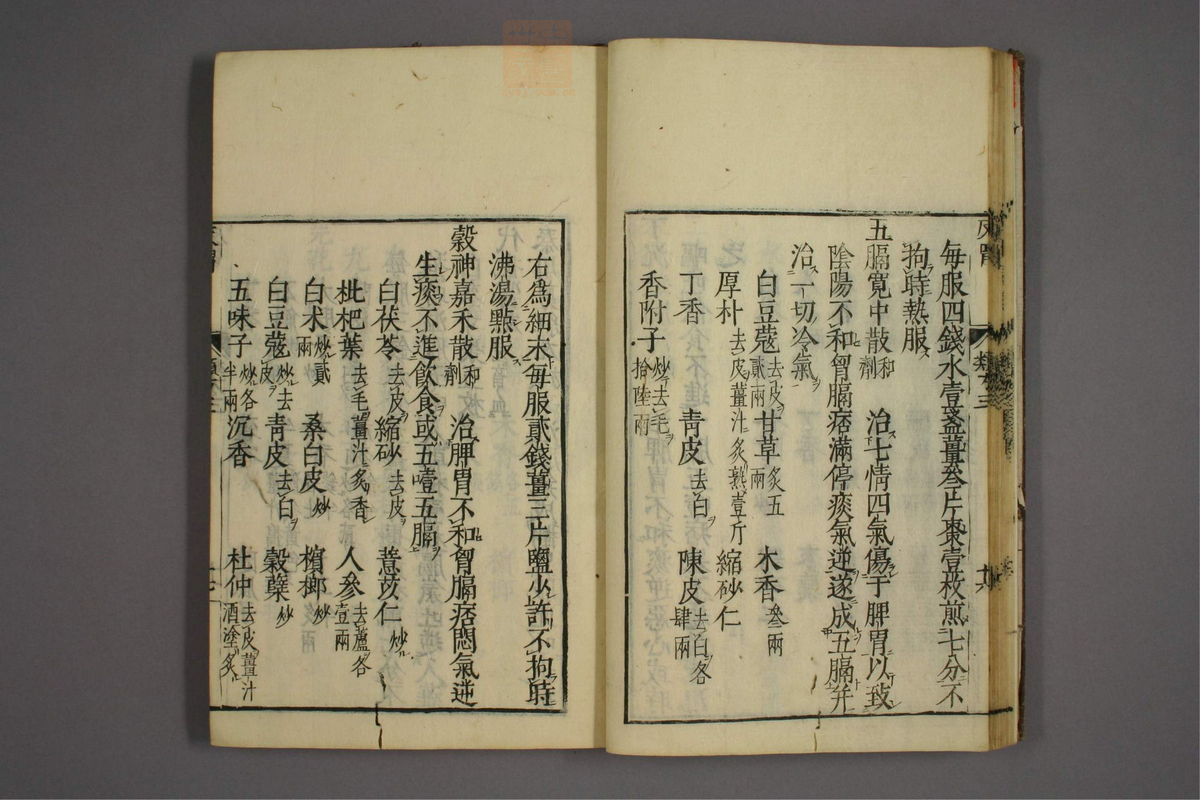 每服四錢水壹盞薑叁片棗壹枚煎七分不
拘時熱服
五膈寬中散和劑 治七情四氣傷于脾胃以致
陰陽不和胷膈痞滿停痰氣逆遂成五膈并
治一切冷氣
白豆蔻去皮貳兩 甘草炙五兩 木香叁兩
厚朴去皮薑汁炙熟壹斤 縮砂仁
丁香 青皮去白 陳皮去白各肆兩
香附子炒去毛拾陸兩
右為細末每服貳錢薑三片鹽少許不拘時
沸湯點服
穀神嘉禾散和劑 治脾胃不和胷膈痞悶氣逆
生痰不進飲食或五噎五膈
白茯苓去皮 縮砂去皮 薏苡仁炒
枇杷葉去毛薑汁炙香 人參去蘆各壹兩
白朮炒貳兩 桑白皮炒 檳榔炒
白豆蔻炒去皮 青皮去白 穀蘖炒
五味子炒各半兩 沉香 杜仲去皮薑汁酒塗炙
類三